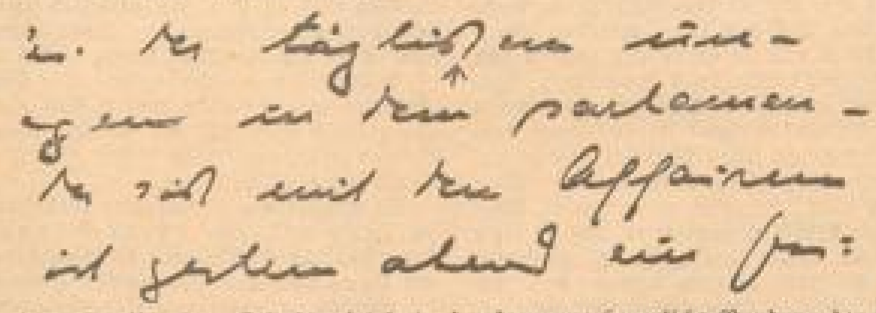 u. der täglichen ein-
gen in dem parlamen-
der sich mit den Affairen
ist gestern abend ein